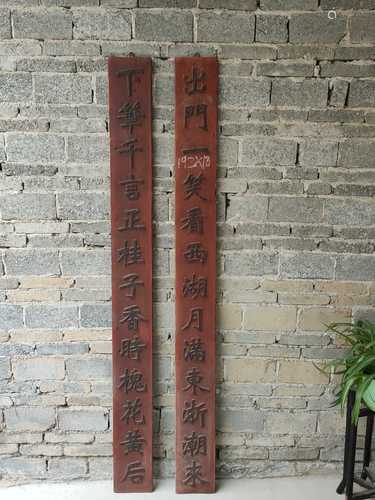 出門一笑看西湖月滿東浙潮來
192X18
下筆千言正桂子香時槐花黃后